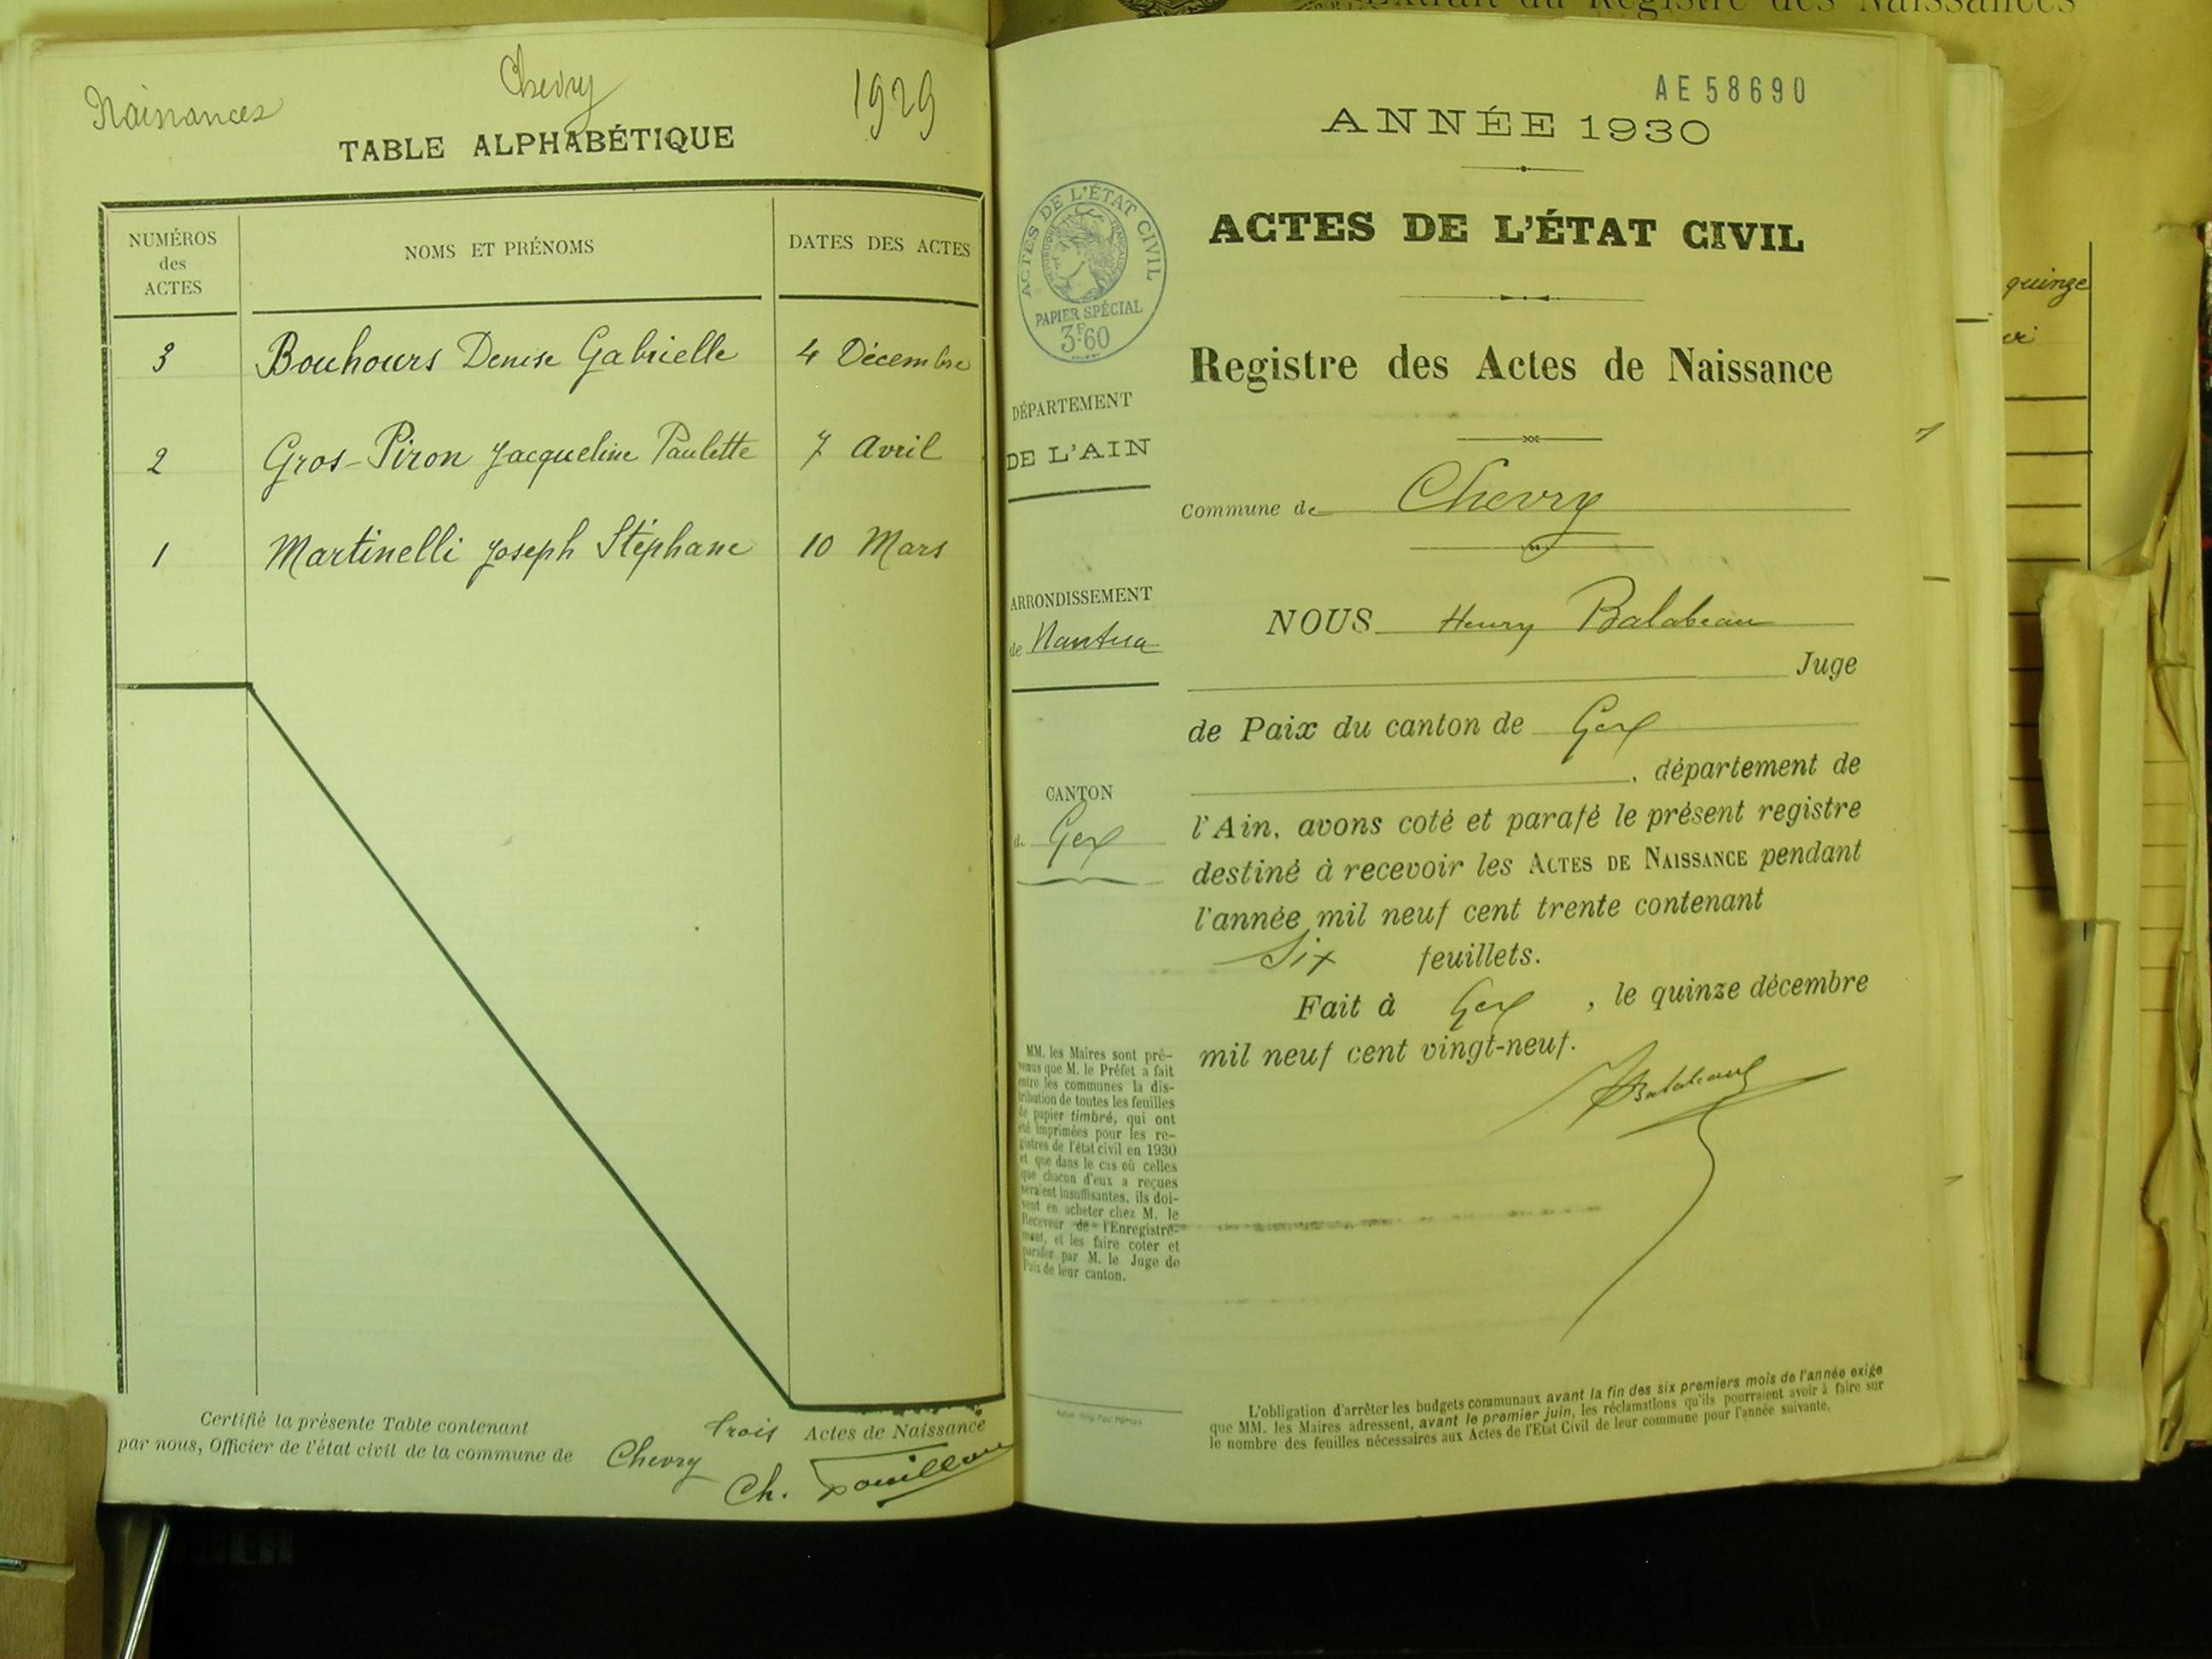 Naissances
Chevry
1929
TABLE ALPHABÉTIQUE
NUMÉROS
des
ACTES
NOMS ET PRÉNOMS
DATES DES ACTES
3 Bouhours Denise Gabrielle 4 Décembre
2 Gros-Piron Jacqueline Paulette 7 Avril
1 Martinelli Joseph Stéphane 10 Mars
Certifié la présente Table contenant trois Actes de Naissance
par nous, Officier de l'état civil de la commune de Chevry
Ch.
Extrait du Registre des Naissances
AE 58690
ANNÉE 1930
ACTES DE L'ÉTAT CIVIL
Registre des Actes de Naissance
ACTES DE L'ÉTAT CIVIL
RÉPUBLIQUE FRANÇAISE
PAPIER SPÉCIAL
3F60
DÉPARTEMENT
DE L'AIN
ARRONDISSEMENT
de Nantua
CANTON
de Gex
MM. les Maires sont pré-
venus que M. le Préfet a fait
entre les communes la dis-
tribution de toutes les feuilles
de papier timbré, qui ont
été imprimées pour les re-
gistres de l'état civil en 1930
et que dans le cas où celles
que chacun d'eux a reçues
seraient insuffisantes, ils doi-
vent en acheter chez M. le
Receveur de l'Enregistre-
ment, et les faire coter et
parafer par M. le Juge de
Paix de leur canton.
Commune de Chevry
NOUS Henry Balabeau
Juge
de Paix du canton de Gex
, département de
l'Ain, avons coté et parafé le présent registre
destiné à recevoir les ACTES DE NAISSANCE pendant
l'année mil neuf cent trente contenant
Six feuillets.
Fait à Gex, le quinze décembre
mil neuf cent vingt-neuf.
Balabeau
L'obligation d'arrêter les budgets communaux avant la fin des six premiers mois de l'année exige
que MM. les Maires adressent, avant le premier juin, les réclamations qu'ils pourraient avoir à faire sur
le nombre des feuilles nécessaires aux Actes de l'Etat Civil de leur commune pour l'année suivante.
quinze